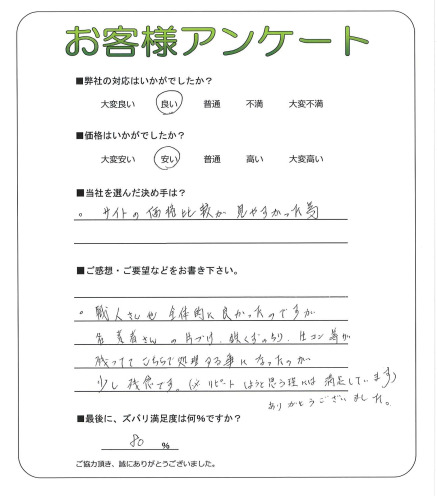 お客様アンケート
■弊社の対応はいかがでしたか?
大変良い 良い 普通 不満 大変不満
■価格はいかがでしたか?
大変安い 安い 普通 高い 大変高い
■当社を選んだ決め手は?
。サイトの価格比較が見やすかった為
■ご感想・ご要望などをお書き下さい。
。職人さん也全体的に良かったのですが
若者さんの片づけ、
残っててこちらで処理する事になったのが
少し残念です。(メリピートしようと思う程には満足しています)
ありがとうございました。
■最後に、ズバリ満足度は何%ですか?
80 %
ご協力頂き、誠にありがとうございました。